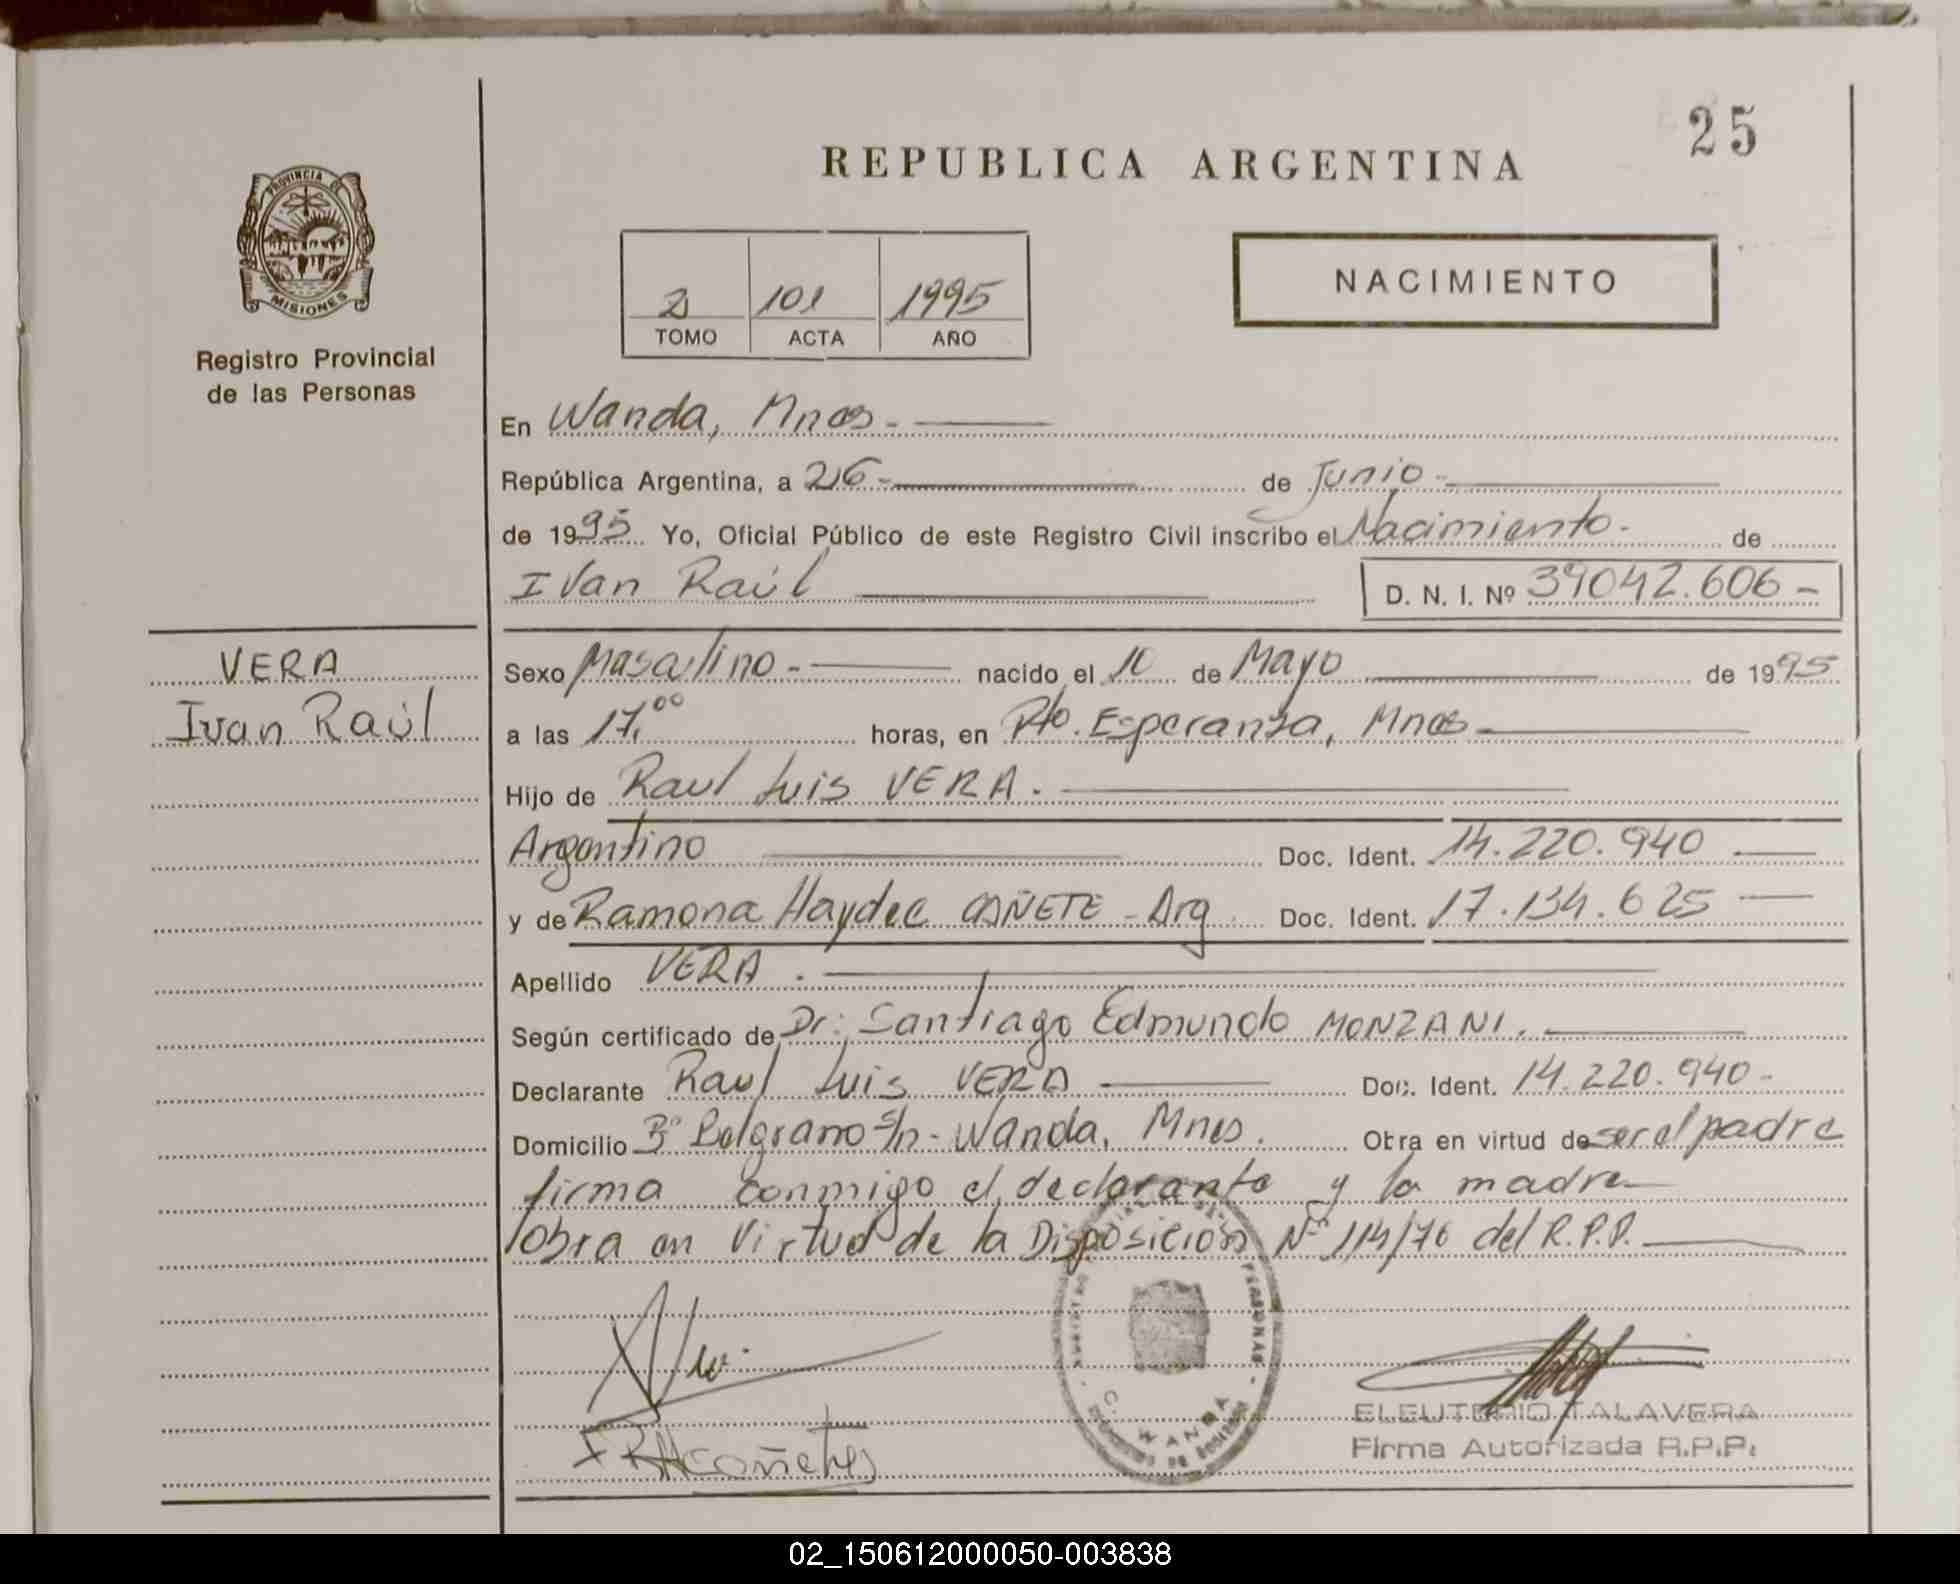 25
REPUBLICA ARGENTINA
PROVINCIA DE
MISIONES
Registro Provincial
de las Personas
2 101 1995
TOMO ACTA AÑO
NACIMIENTO
En Wanda, Mnes.-
República Argentina, a 26- de Junio-
de 1995 Yo, Oficial Público de este Registro Civil inscribo el Nacimiento.- de
Ivan Raúl D. N. I. Nº 39042.606-
VERA
Ivan Raúl
Sexo Masculino- nacido el 10 de Mayo de 1995
a las 17,00 horas, en Pto. Esperanza, Mnes
Hijo de Raul Luis VERA.
Argentino Doc. Ident. 14.220.940
y de Ramona Haydee CAÑETE - Arg. Doc. Ident. 17.134.625
Apellido VERA.
Según certificado de Dr: Santiago Edmundo MONZANI.
Declarante Raul Luis VERA Doc. Ident. 14.220.940-
Domicilio Bº Belgrano s/n- Wanda, Mnes. Obra en virtud de ser el padre
firma conmigo el declarante y la madre
obra en virtud de la Disposición Nº 114/76 del R.P.P.
WANDA
ELEUTERIO TALAVERA
Firma Autorizada R.P.P.
02_150612000050-003838